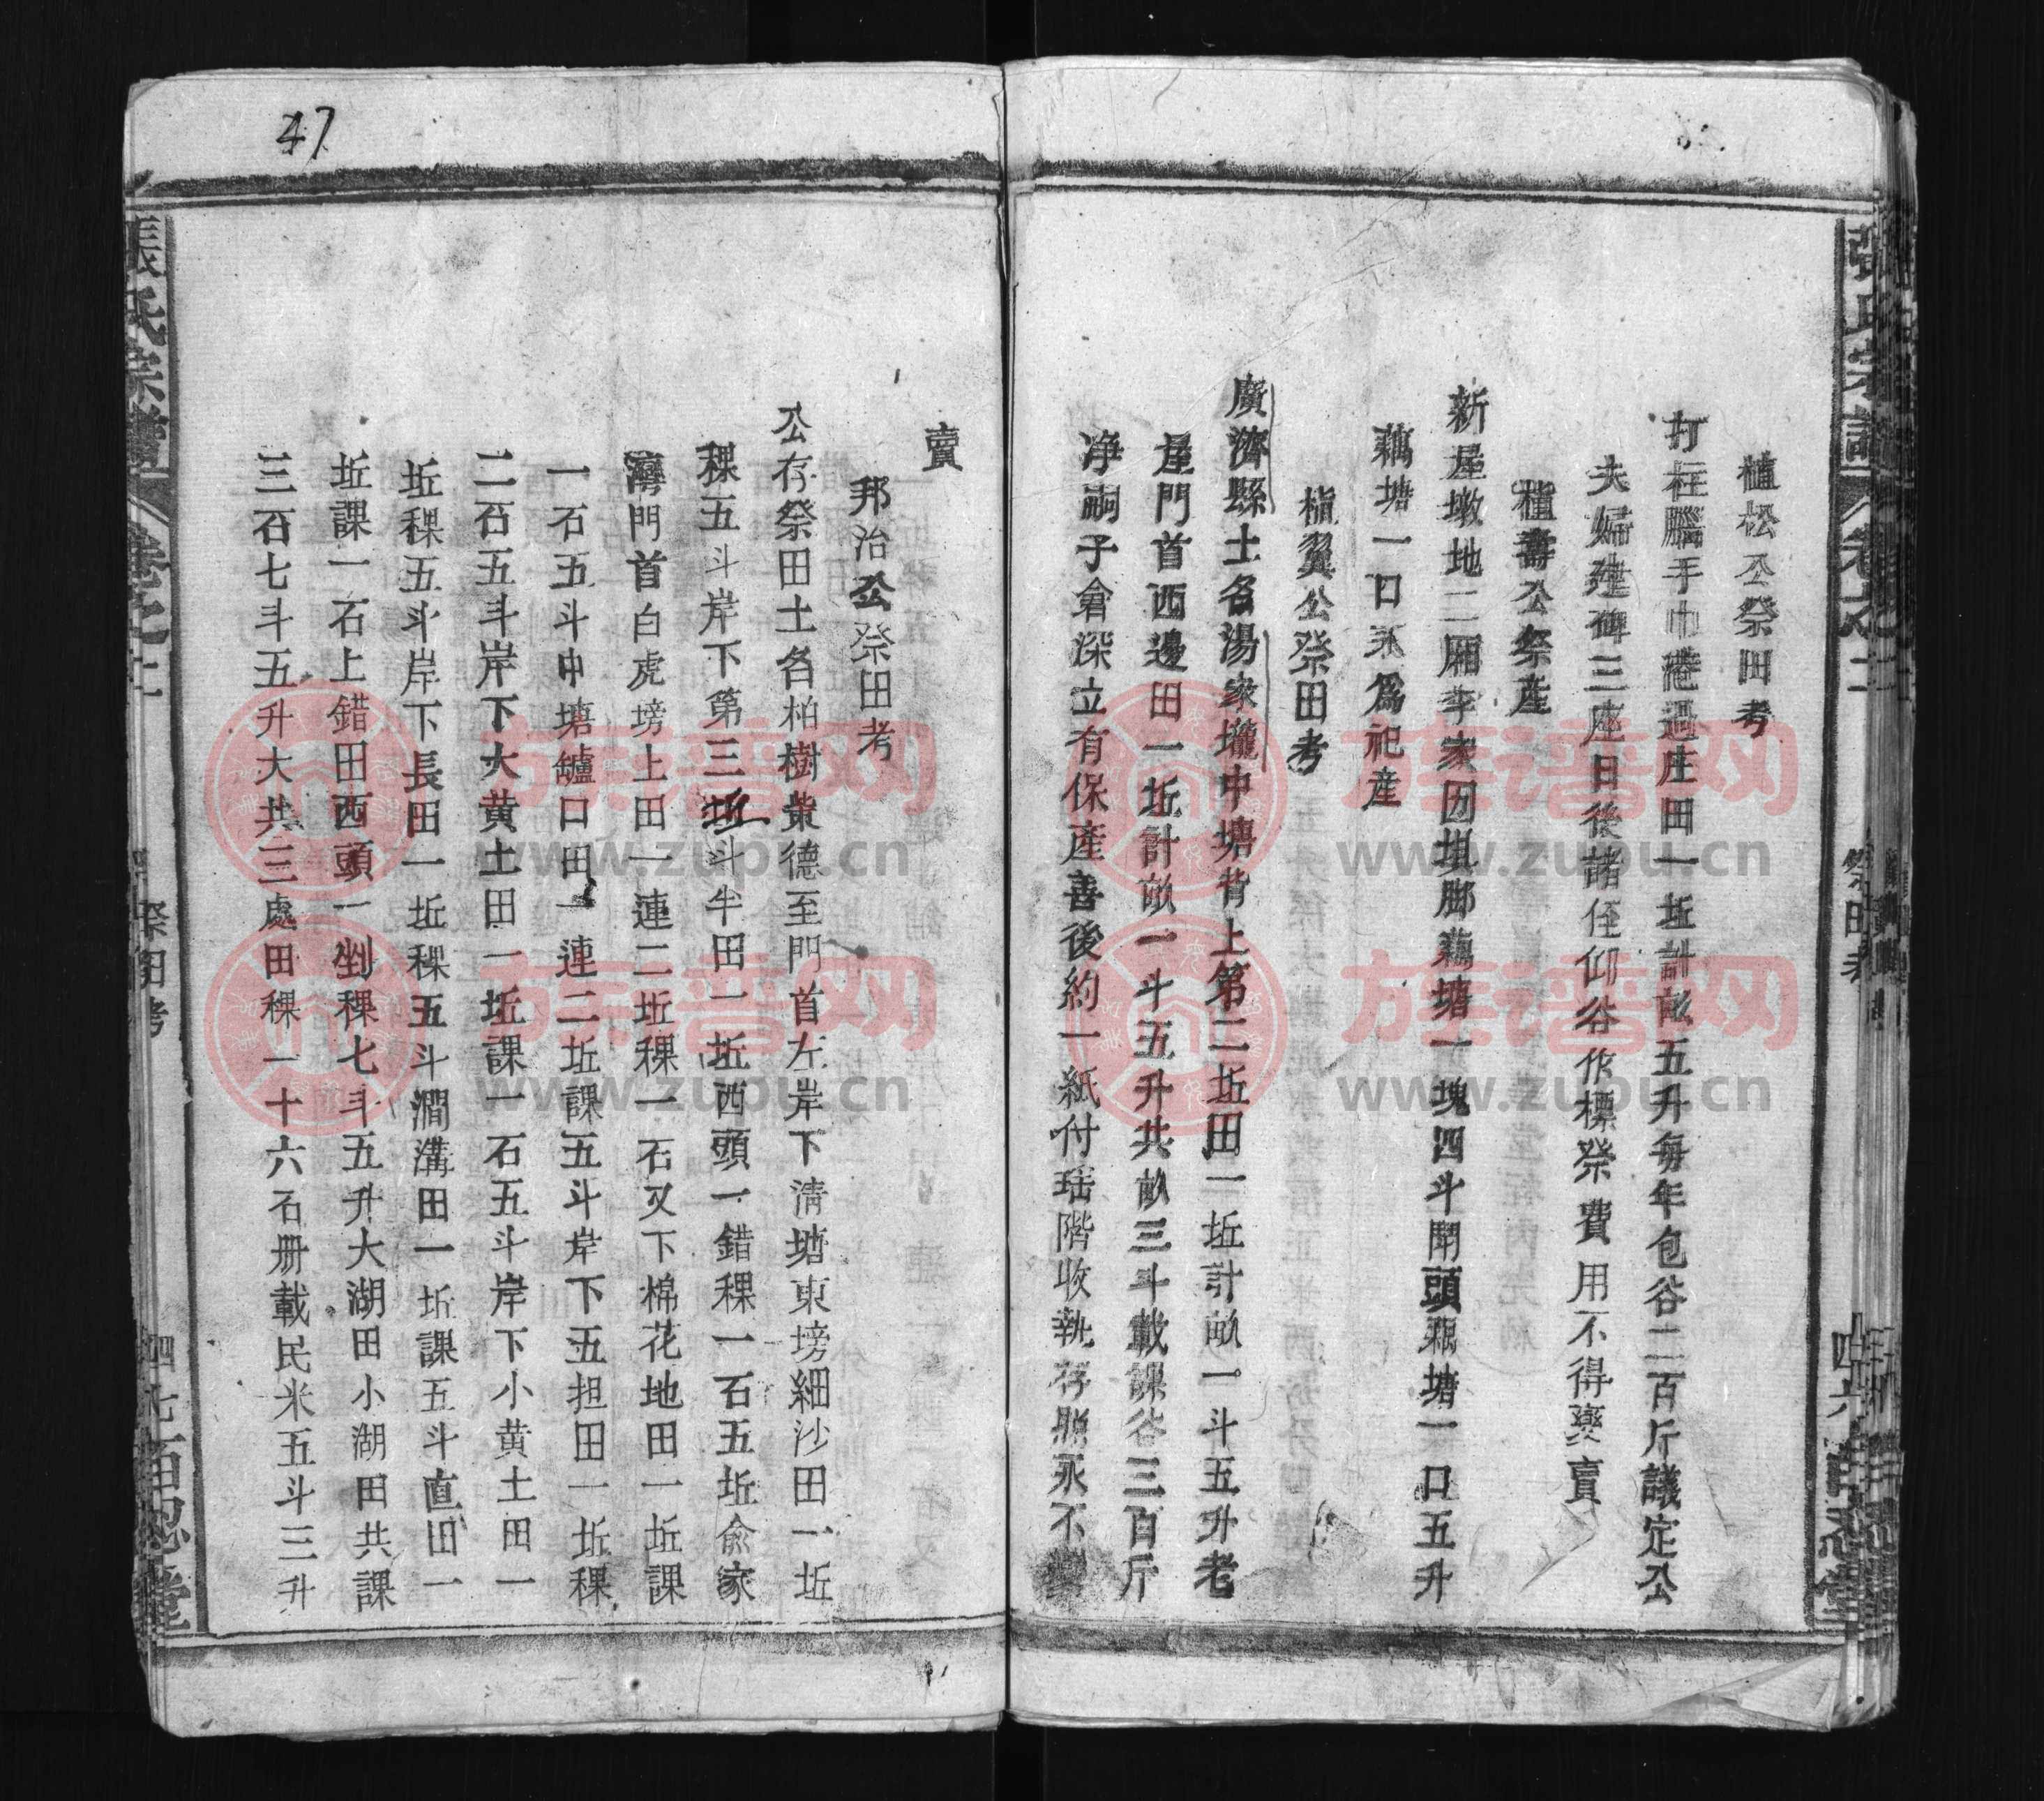 張氏宗譜 卷之二 祭田考 四六 百忍堂
植松公祭田考
打柱腦手巾港過庄田一坵計畝五升每年包谷二百斤議定公
夫婦建碑三座日後諸侄仰谷作標祭費用不得變賣
植壽公祭産
新屋墩地二厢李家因垻脚藕塘一塊四斗開頭藕塘一口五升
藕塘一口永爲祀産
植翼公祭田考
廣濟縣土名湯家壠中塘背上第二坵田一坵計畝一斗五升老
屋門首西邊田一坵計畝一斗五升共畝三斗載課谷三百斤
净嗣子倉深立有保產善後約一紙付瑶階收執存照永不變
賣
邦治公祭田考
公存祭田土名柏樹業德至門首左岸下清塘東塝細沙田一坵
稞五斗岸下第三坵斗半田一坵西頭一錯稞一石五坵俞家
灣門首白虎塝上田一連二坵稞一石又下棉花地田一坵課
一石五斗中塘罏口田一連二坵課五斗岸下五担田一坵稞
二石五斗岸下大黄土田一坵課一石五斗岸下小黄土田一
坵稞五斗岸下長田一坵稞五斗澗溝田一坵課五斗直田一
坵課一石上錯田西頭一剉稞七斗五升大湖田小湖田共課
三石七斗五升大共三處田稞一十六石册載民米五斗三升
張氏宗譜 卷之二 祭田考 四七 百忍堂
47
族谱网
www.zupu.cn
族谱网
www.zupu.cn
族谱网
www.zupu.cn
族谱网
www.zupu.cn